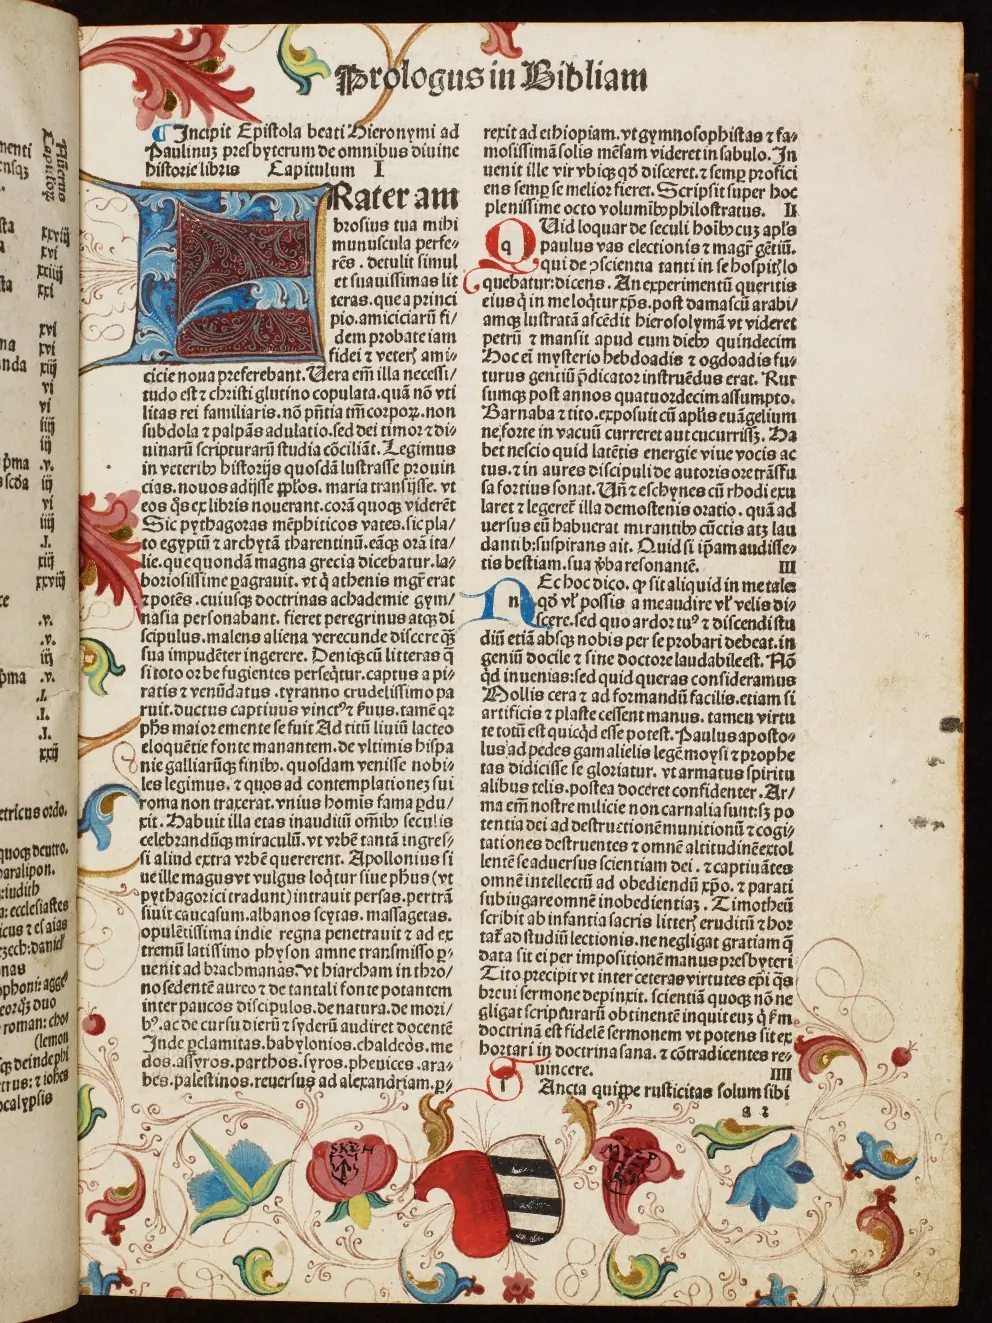 xxviij
xvi
xxiiij
xxi
xvi
xvi
xiij
vi
vi
iiij
iij
.v.
iij
vi
iiij
.I.
xiij
xxviij
.v.
.v.
iij
.v.
.I.
.I.
.I.
xxij
etricus ordo.
aralipon.
:iudith
a: ecclesiastes
icus ⁊ esaias
zech:daniel
Prologus in Bibliam
Incipit Epistola beati Hieronymi ad
Paulinuʒ presbyterum de omnibus diuine
historie libris Capitulum I
FRater am
brosius tua mihi
munuscula perfe⸗
rēs . detulit simul
et suauissimas lit
teras. que a princi
pio. amiciciarū fi/
dem probate iam
fidei ⁊ veterꝭ ami⸗
cicie noua preferebant. Uera em̄ illa necessi/
tudo est ⁊ christi glutino copulata. quā nō vti
litas rei familiaris. nō p̄ntia tm̄ corpoꝝ. non
subdola ⁊ palpās adulatio. sed dei timor ⁊ di⸗
uinarū scripturarū studia cōciliāt. Legimus
in veteribꝰ historijs quosdā lustrasse prouin
cias. nouos adijsse pp̄los. maria transijsse. vt
eos q̄s ex libris nouerant. corā quoqꝫ viderēt
Sic pythagoras mēphiticos vates. sic pla/
to egyptū ⁊ archytā tharentinū. eāqꝫ orā ita/
lie. que quondā magna grecia dicebatur. la⸗
boriosissime ꝑagrauit. vt q̄ athenis mgr̄ erat
⁊ potēs . cuiusqꝫ doctrinas achademie gym/
nasia personabant. fieret peregrinus atqꝫ di
scipulus. malens aliena verecunde discere qꝫ̄
sua impudēter ingerere. Deniqꝫ cū litteras q̄
si toto orbe fugientes perseq̄tur. captus a pi⸗
ratis ⁊ venūdatus . tyranno crudelissimo pa
ruit. ductus captiuus vinctꝰ ⁊ ẜuus. tamē qꝛ
ph̄s maior emente se fuit Ad titū liuiū lacteo
eloquētie fonte manantem. de vltimis hispa
nie galliarūqꝫ finibꝰ. quosdam venisse nobi⸗
les legimus. ⁊ quos ad contemplationeʒ sui
roma non traxerat. vnius homīs fama ꝑdu/
xit. Habuit illa etas inauditū om̄ibꝰ seculis
celebrandūqꝫ miraculū. vt vrbē tantā ingres⸗
si aliud extra vrbē quererent. Apollonius si
ue ille magus vt vulgus loq̄tur siue ph̄us (vt
pythagorici tradunt) intrauit persas. pertrā
siuit caucasum. albanos scytas. massagetas.
opulētissima indie regna penetrauit ⁊ ad ex
tremū latissimo physon amne transmisso ꝑ⸗
uenit ad brachmanas. vt hiarcham in thro/
no sedentē aureo ⁊ de tantali fonte potantem
inter paucos discipulos. de natura. de mori/
bꝰ. ac de cursu dierū ⁊ syderū audiret docentē
Inde ꝑ elamitas. babylonios. chaldeos. me
dos. assyros. parthos. syros. phenices . ara⸗
bes. palestinos. reuersus ad alexandriam. ꝑ⸗
rexit ad ethiopiam. vt gymnosophistas ⁊ fa⸗
mosissimā solis mēsam videret in sabulo. In
uenit ille vir vbiqꝫ qd̄ disceret. ⁊ semꝑ profici
ens semꝑ se melior fieret. Scripsit super hoc
plenissime octo voluminibꝰ philostratus. II
QUid loquar de seculi hoībꝰ cuʒ apl̄s
paulus vas electionis ⁊ magr̄ gētiū.
qui de ꝯscientia tanti in se hospitꝭ lo
quebatur: dicens. An experimentū queritis
eius q̄ in me loq̄tur xp̄s. post damascū arabi/
amqꝫ lustratā ascēdit hierosolymā vt videret
petrū ⁊ mansit apud eum diebꝰ quindecim
Hoc em̄ mysterio hebdoadis ⁊ ogdoadis fu⸗
turus gentiū p̄dicator instruēdus erat. Rur
sumqꝫ post annos quatuordecim assumpto.
Barnaba ⁊ tito. exposuit cū apl̄is euāgelium
ne forte in vacuū curreret aut cucurrissꝫ. Ha
bet nescio quid latētis energie viue vocis ac
tus. ⁊ in aures discipuli de autoris ore trāsfu
sa fortius sonat. Uñ ⁊ eschynes cū rhodi exu
laret ⁊ legeret̄ illa demostenis oratio. quā ad
uersus eū habuerat mirantibꝰ cūctis atqꝫ lau
dantib: suspirans ait. Quid si ip̄am audisse⸗
tis bestiam. sua v̄ba resonantē. III
NEc hoc dico. ꝙ sit aliquid in me tale
qd̄ vl̄ possis a me audire vl̄ velis di⸗
scere. sed quo ardor tuꝰ ⁊ discendi stu
diū etiā absqꝫ nobis per se probari debeat. in
geniū docile ⁊ sine doctore laudabile est. Nō
qd̄ inuenias: sed quid queras consideramus
Mollis cera ⁊ ad formandū facilis. etiam si
artificis ⁊ plaste cessent manus. tamen virtu
te totū est quicq̄d esse potest. Paulus aposto⸗
lus ad pedes gamalielis legē moysi ⁊ prophe
tas didicisse se gloriatur. vt armatus spiritu
alibus telis. postea doceret confidenter. Ar/
ma em̄ nostre milicie non carnalia sunt: sꝫ po
tentia dei ad destructionē munitionū ⁊ cogi⸗
tationes destruentes ⁊ omnē altitudinē extol
lentē se aduersus scientiam dei . ⁊ captiuātes
omnē intellectū ad obediendū xp̄o. ⁊ parati
subiugare omnē inobedientiaʒ . Timotheū
scribit ab infantia sacris litterꝭ eruditū ⁊ hor
tat̄ ad studiū lectionis. ne negligat gratiam q̄
data sit ei per impositionē manus presbyteri
Tito precipit vt inter ceteras virtutes ep̄i q̄s
breui sermone depinxit. scientiā quoqꝫ nō ne
gligat scripturarū obtinentē inquit eum q̄ ẜm
doctrinā est fidelē sermonem vt potens sit ex
hortari in doctrina sana. ⁊ cōtradicentes re⸗
uincere. IIII
SAncta quippe rusticitas solum sibi
a 2